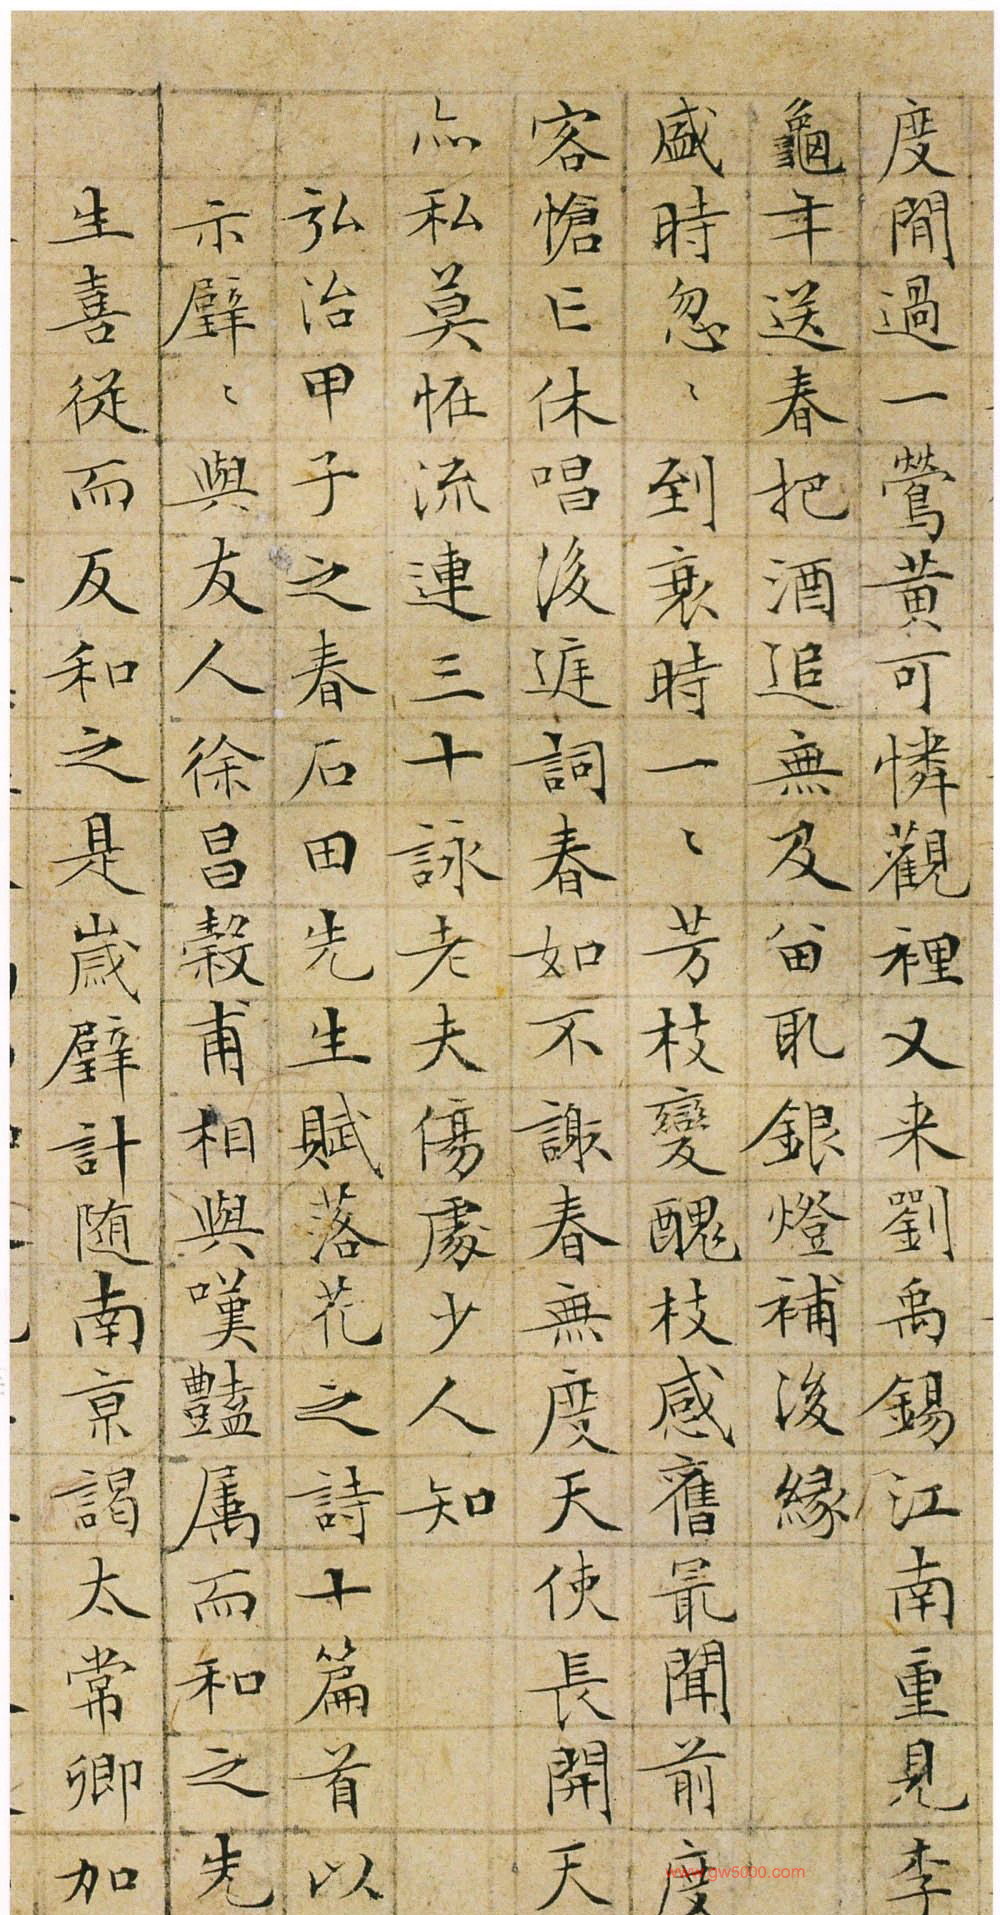 度閒過一鶯黃可憐觀裡又来劉禹錫江南重見李
龜年送春把酒追無及留取銀燈補後緣
盛時忽〻到衰時一〻芳枝變醜枝感舊最聞前度
客愴亡休唱後庭詞春如不謝春無度天使長開天
亦私莫怪流連三十詠老夫傷處少人知
弘治甲子之春石田先生賦落花之詩十篇首以
示璧〻與友人徐昌穀甫相與嘆豔属而和之先
生喜從而反和之是歲璧計随南京謁太常卿加
www.gw5000.com